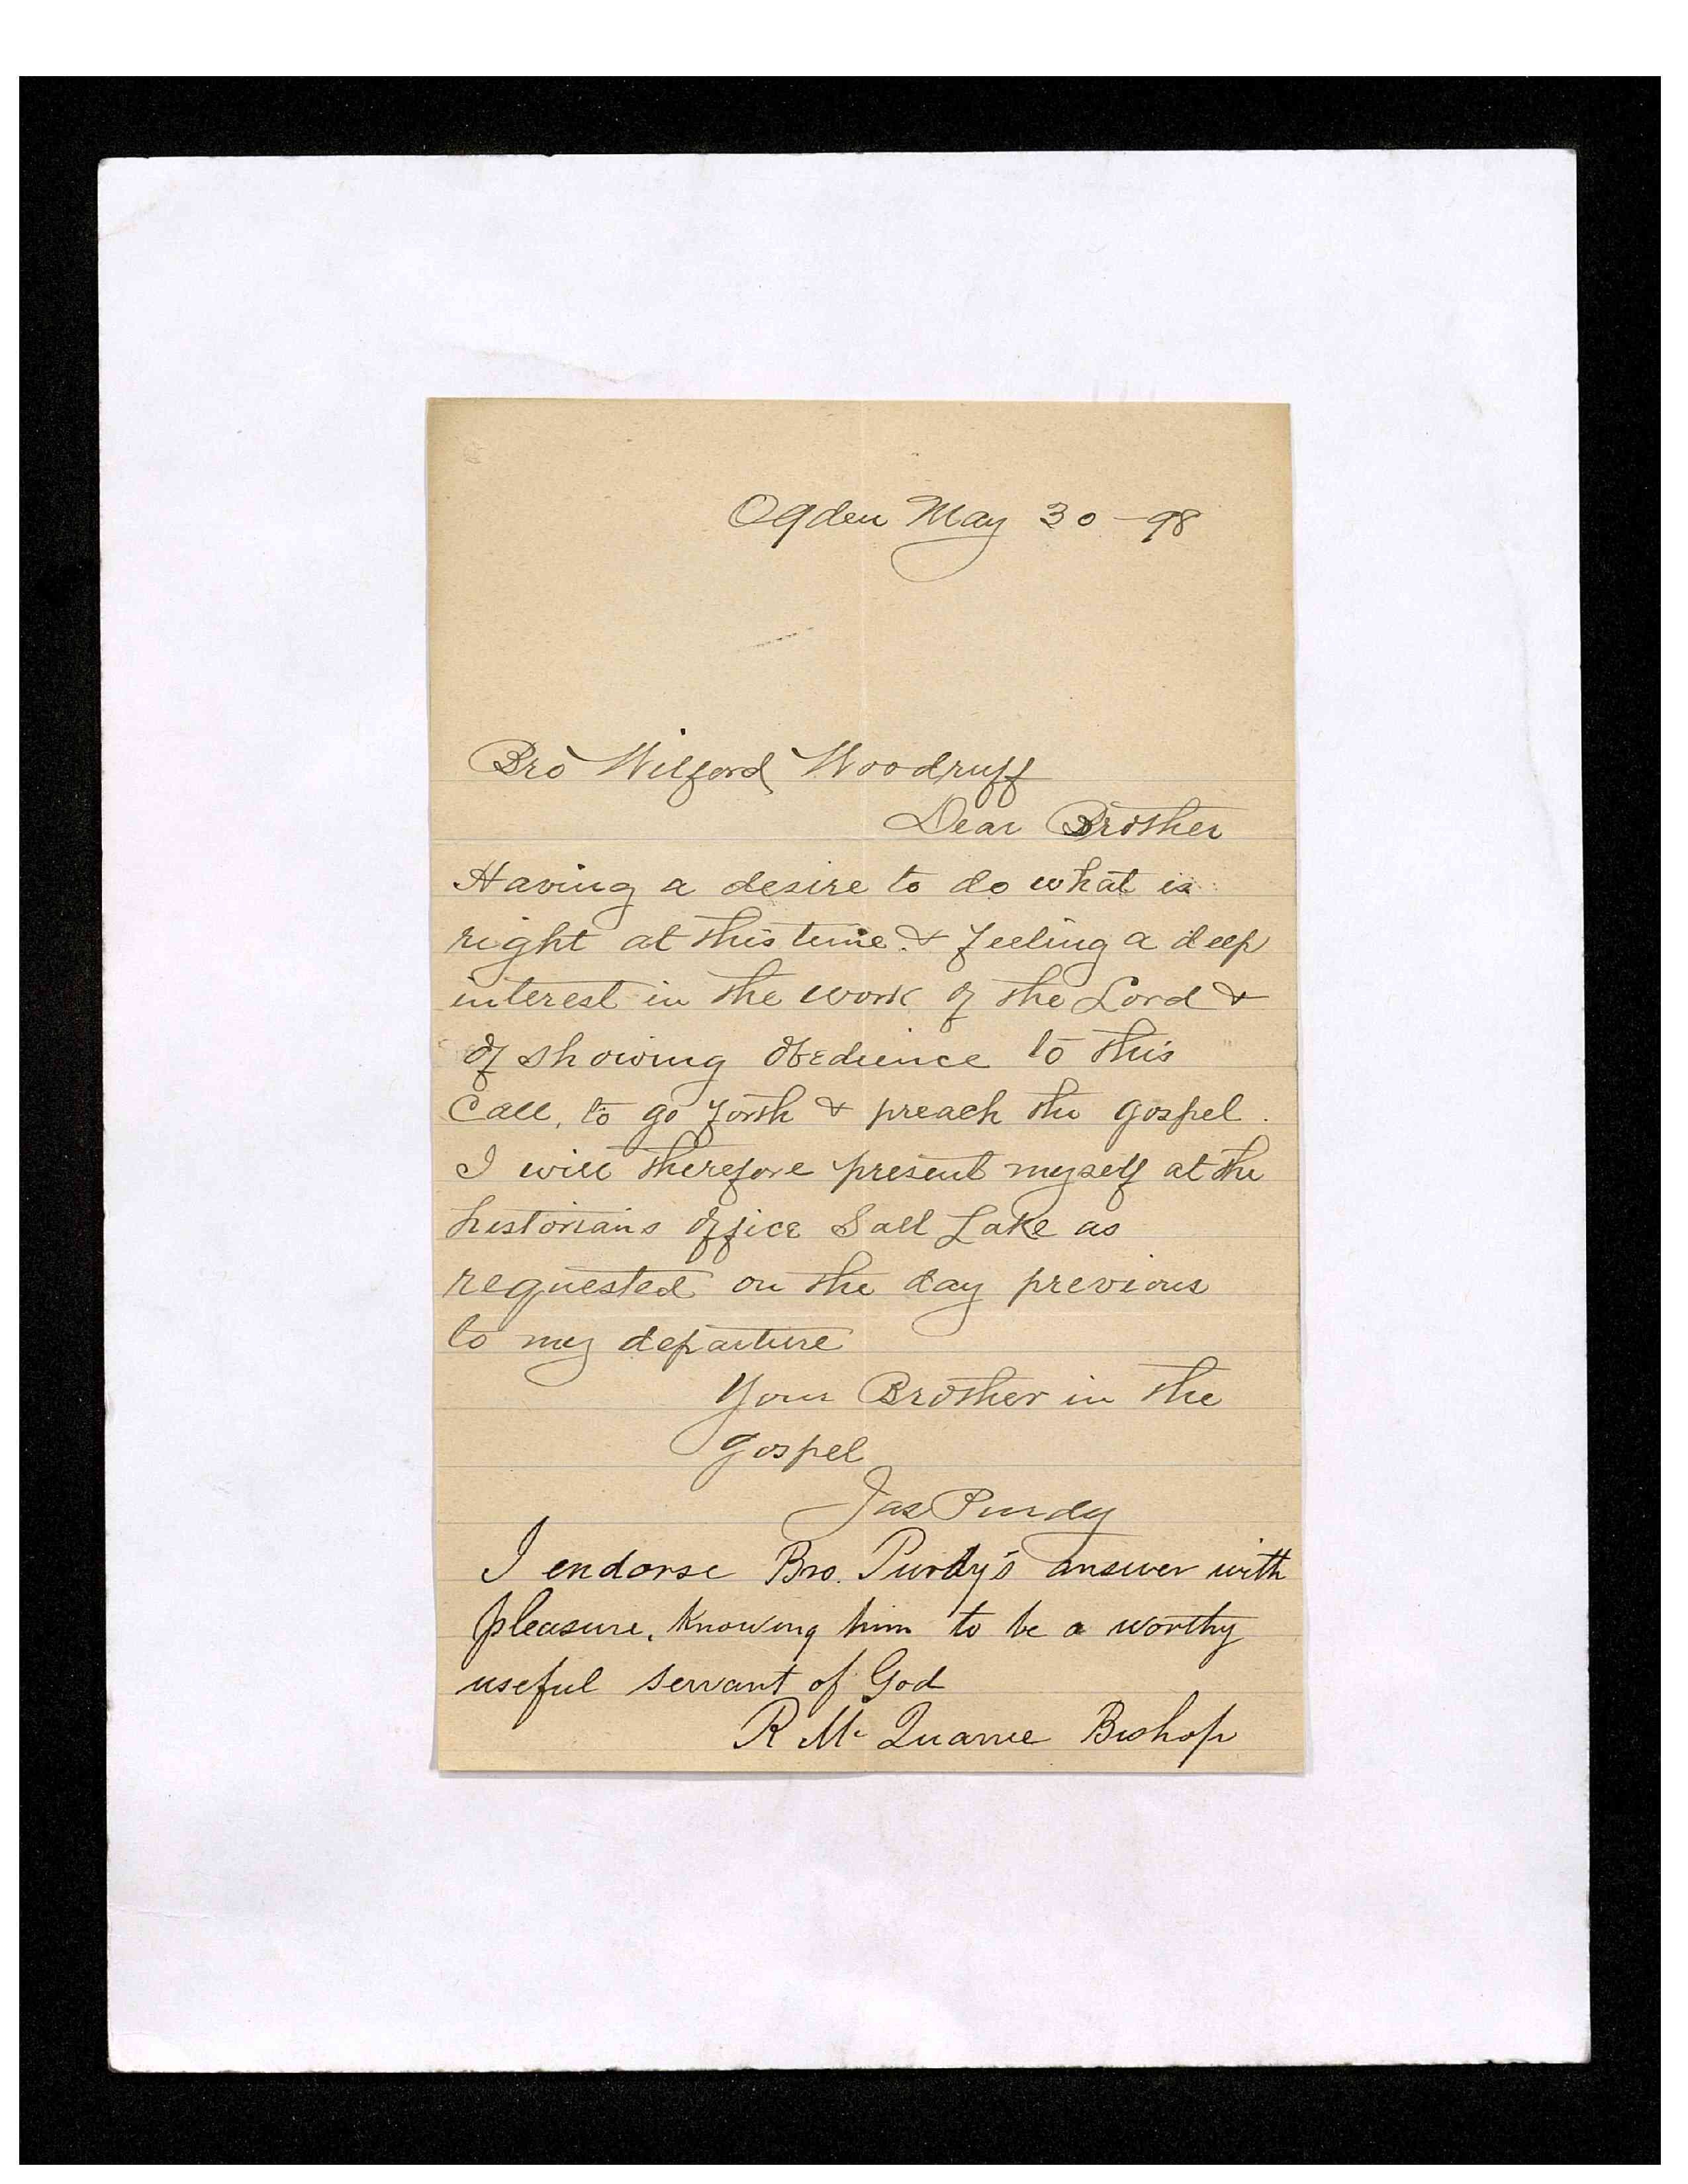 Ogden May 30 - 98
Bro Wilford Woodruff
Dear Brother
Having a desire to do what is
right at this time & feeling a deep
interest in the work of the Lord &
of showing obedience to this
call, to go forth & preach the gospel.
I will therefore present myself at the
historians office Salt Lake as
requested on the day previous
to my departure
Your Brother in the
gospel
Jas Purdy
I endorse Bro. Purdy's answer with
pleasure, knowing him to be a worthy
useful servant of God
R Mc Quarrie Bishop